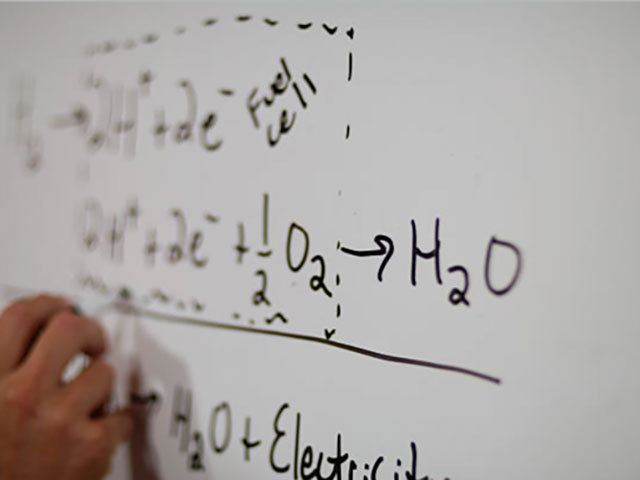 H₂ → 2H⁺ + 2e⁻ Fuel cell
2H⁺ + 2e⁻ + 1/2 O₂ → H₂O
→ H₂O + Electricity